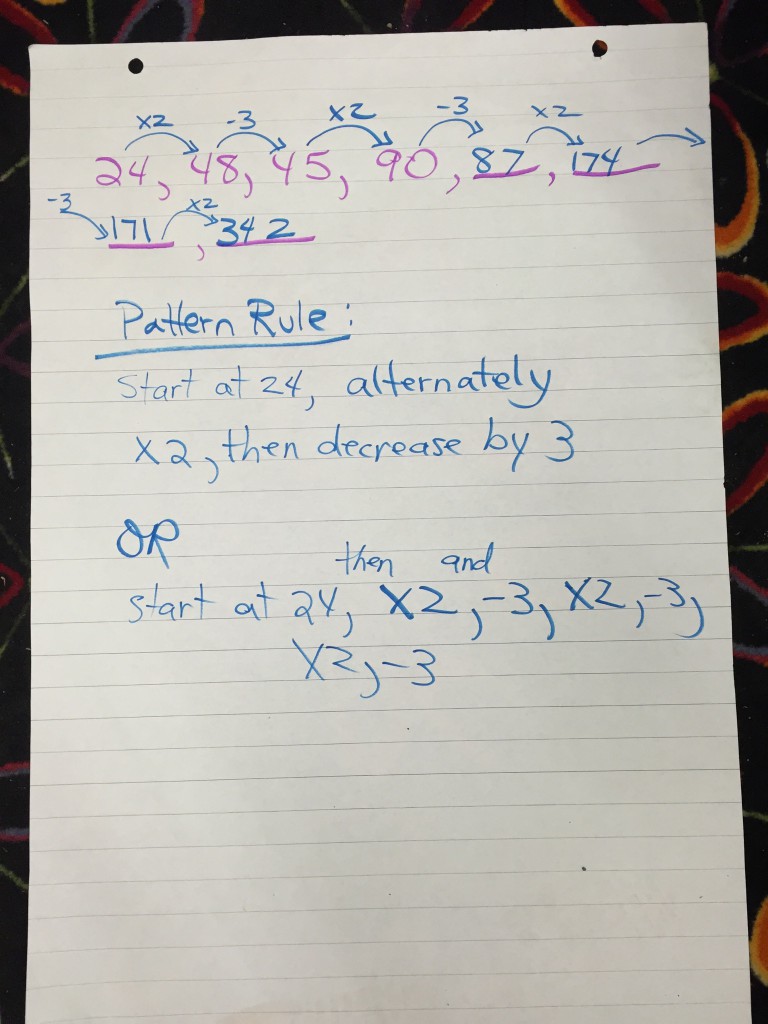 x2 -3 x2 -3 x2
24, 48, 45, 90, 87, 174
-3 x2
171, 342
Pattern Rule:
Start at 24, alternately
x2, then decrease by 3
OR
then and
start at 24, x2, -3, x2, -3,
x2, -3